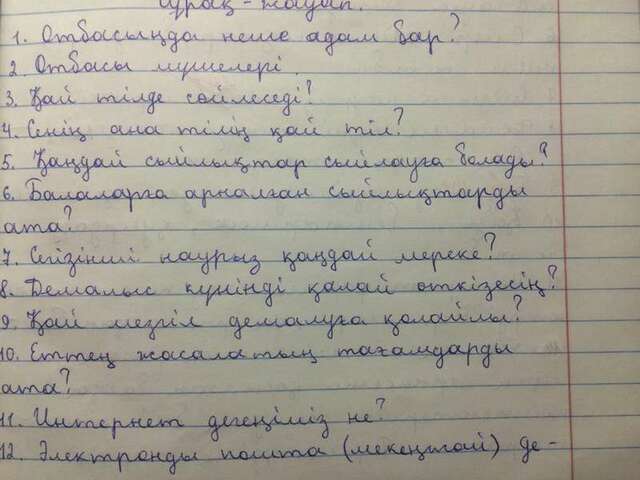 Сұрақ - жауап.
1. Отбасыңда неше адам бар?
2. Отбасы мүшелері.
3. Қай тілде сөйлеседі?
4. Сенің ана тілің қай тіл?
5. Қандай сыйлықтар сыйлауға болады?
6. Балаларға арналған сыйлықтарды
ата?
7. Сегізінші наурыз қандай мереке?
8. Демалыс күніңді қалай өткізесің?
9. Қай мезгіл демалуға қолайлы?
10. Еттең жасалатың тағамдарды
ата?
11. Интернет дегеңіміз не?
12. Электронды пошта (мекеңжай) де-